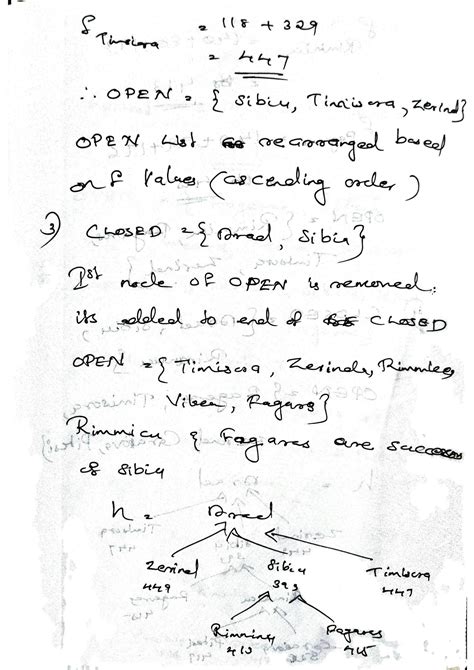 f Timisora = 118 + 329
= 447
∴ OPEN = { Sibiu, Timisora, Zerind}
OPEN List is rearranged based
on f values (ascending order)
3) CLOSED = { Arad, Sibiu}
Ist node of OPEN is removed;
its added to end of CLOSED
OPEN = { Timisora, Zerind, Rimnicu
Vilcea, Fagaras}
Rimmicu & Fagaras are success
of sibiu
n = Arad
Zerind Sibiu Timisora
449 393 447
Rimmicu Fagares
413 415